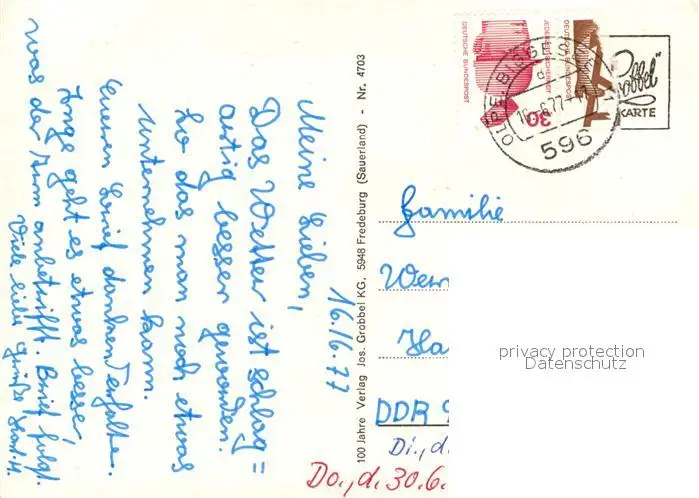 16./6.77
Meine Lieben,
Das Wetter ist schlag=
artig besser geworden.
so das man noch etwas
unternehmen kann.
Eueren Brief dankend erhalten.
Inge geht es etwas besser,
was der Turm anbetrifft. Brief folgt.
Viele liebe Grüße
100 Jahre Verlag Jos. Grobbel KG, 5948 Fredeburg (Sauerland) - Nr. 4703
DEUTSCHE BUNDESPOST
30
JEDERZEIT SICHERHEIT
DEUTSCHE BUNDESPOST
OLPE BIGGESEE
d
16.6.77-17
596
Grobbel
KARTE
Familie
Wer
Ha
DDR 9
Di., d.
Do., d. 30.6.
privacy protection
Datenschutz